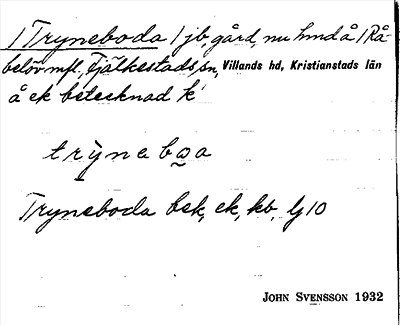 /Tryneboda / jb, gård, nu hmd å /Rå-
belöv mfl, Fjälkestads sn, Villands hd, Kristianstads län
å ek betecknad k
trỳneboa
Tryneboda bek, ek, kb, lj 10
JOHN SVENSSON 1932